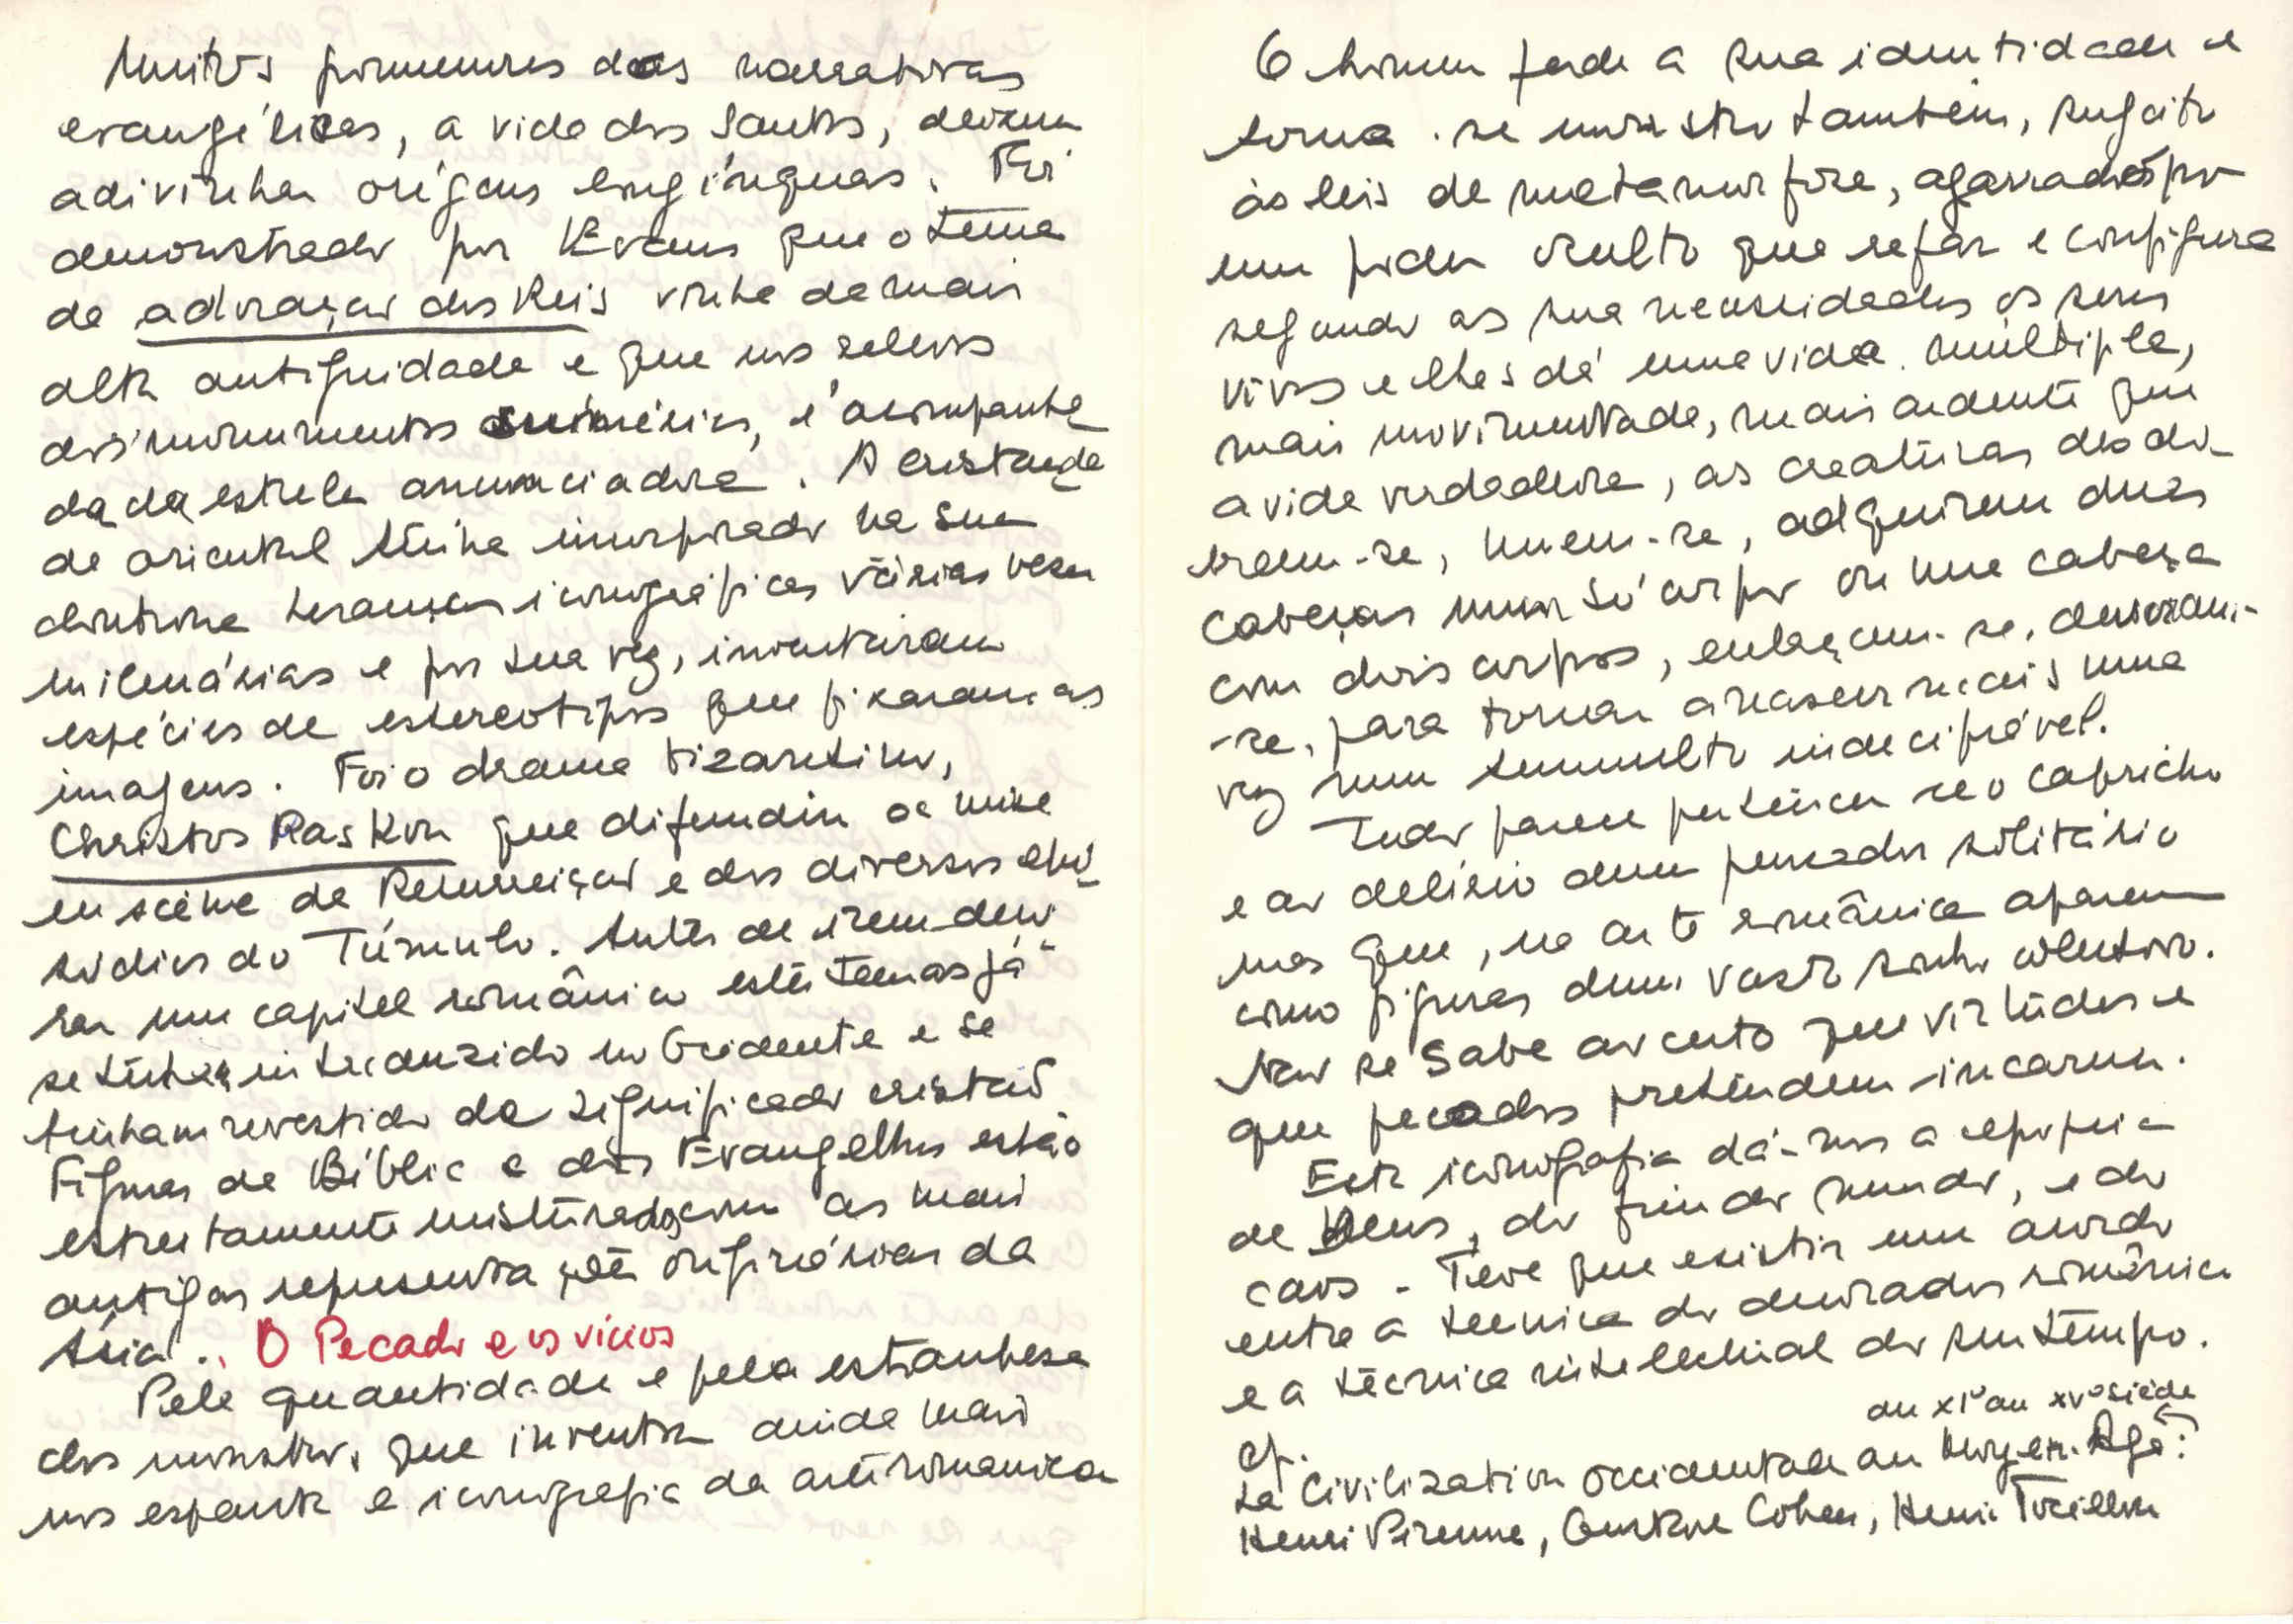 Muitos pormenores das narrativas
evangélicas, a vida dos Santos, deixam
adivinhar origens longínquas. Foi
demonstrado por Evans que o tema
da adoração dos Reis vinha da mais
alta antiguidade e que nos relevos
dos monumentos sumérios, é acompanha
da da estrela anunciadora. A cristanda
de oriental tinha incorporado na sua
doutrina heranças iconográficas várias vezes
milenárias e por sua vez, inventaram
espécies de estereotipos que fixaram as
imagens. Foi o drama bizantino,
Christos Paskon que difundiu a mise
en scène da Ressurreição e dos diversos epi
sódios do Túmulo. Antes de irem deco
rar um capitel românico estes temas já
se tinham introduzido no Ocidente e se
tinham revestido de significado cristão
Figuras da Bíblia e dos Evangelhos estão
estreitamente misturadas com as mais
antigas representações originárias da
Ásia. O Pecado e os vicios
Pela quantidade e pela estranhesa
dos monstros que inventa ainda mais
nos espanta a iconografia da arte romanica
O homem perde a sua identidade e
torna-se monstro também, sugeito
às leis de metamorfose, agarrados por
um poder oculto que refaz e configura
segundo as sua necessidades os seres
vivos e lhes dá uma vida múltipla,
mais movimentada, mais ardente que
a vida verdadeira, as creaturas desdo
bram-se, unem-se, adquirem duas
cabeças num só corpo ou uma cabeça
com dois corpos, enlaçam-se, devoram-
-se, para tornar a nascer mais uma
vez num tumulto indecifrável.
Tudo parece pertencer ao capricho
e ao delírio dum pensador solitário
mas que, na arte românica aparecem
como figuras dum vasto sonho colectivo.
Não se sabe ao certo que virtudes e
que pecados pretendem incarnar.
Esta iconografia dá-nos a epopeia
de Deus, do fim do mundo, e do
caos. Teve que existir um acordo
entre a tecnica do decorador românico
e a técnica intelectual do seu tempo.
du XIº au XVº siècle
cf.
La Civilization Occidentale au Moyen Age:
Henri Pirenne, Gustave Cohen, Henri Focillon